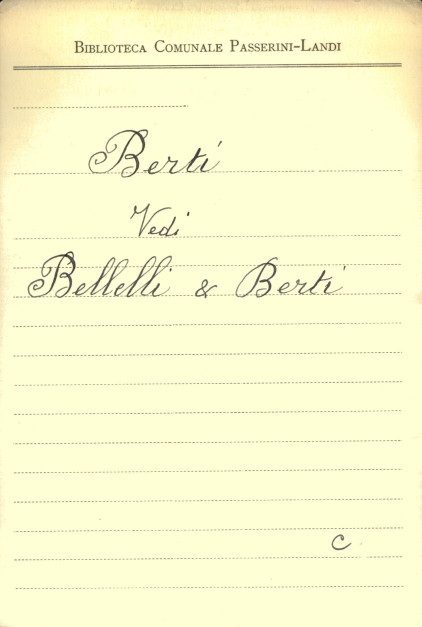 Biblioteca Comunale Passerini-Landi
Berti
Vedi
Bellelli & Berti
C